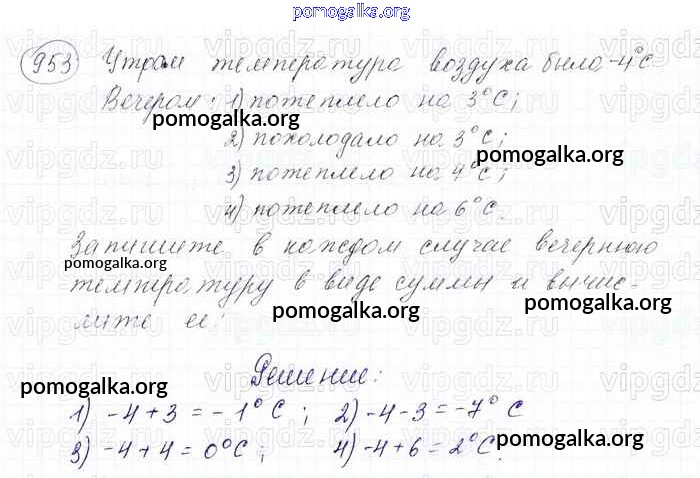 pomogalka.org
953 Утром температура воздуха была -4°С
Вечером: 1) потеплело на 3°С;
pomogalka.org
2) похолодало на 3°С;
pomogalka.org
3) потеплело на 4°С;
4) потеплело на 6°С.
Запишите в каждом случае вечернюю
pomogalka.org
температуру в виде суммы и вычис-
pomogalka.org
pomogalka.org
лите её:
Решение:
pomogalka.org
1) -4+3=-1°С; 2) -4-3=-7°С
3) -4+4=0°С; 4) -4+6=2°С.
pomogalka.org